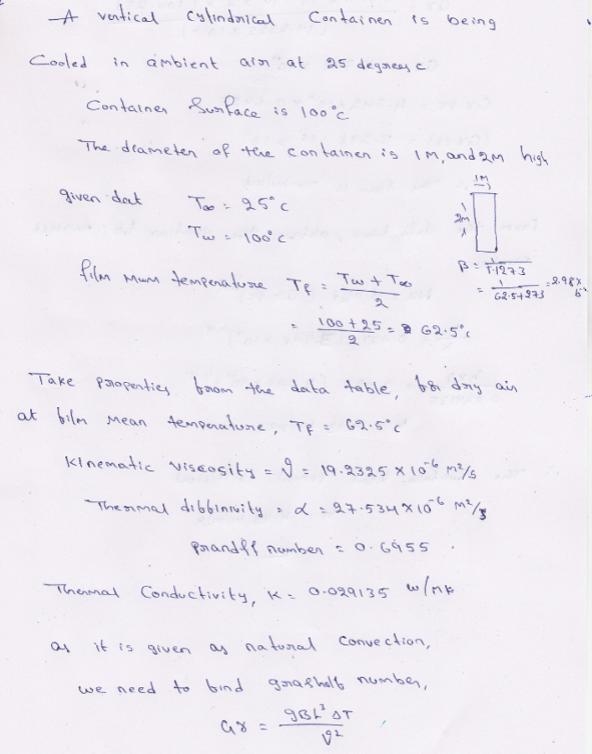 A vertical Cylindrical Container is being
Cooled in ambient air at 25 degrees c
Container Surface is 100°c
The diameter of the container is 1M, and 2M high
1M
given dat T∞ = 25°c
2m
Tw = 100°c
β = 1/T+273
film mum temperature Tf = Tw + T∞ / 2
= 1/62.5+273 = 2.98×
= 100+25/2 = 62.5°c
Take properties from the data table, for dry air
at film mean temperature, Tf = 62.5°c
Kinematic viscosity = ϑ = 19.2325 × 10⁻⁶ m²/s
Thermal diffinvity = α = 27.534 × 10⁻⁶ m²/s
prandtl number = 0.6955
Thermal Conductivity, K = 0.029135 w/mk
as it is given as natural convection,
we need to find grashoff number,
Gr = gBL³ΔT / ϑ²